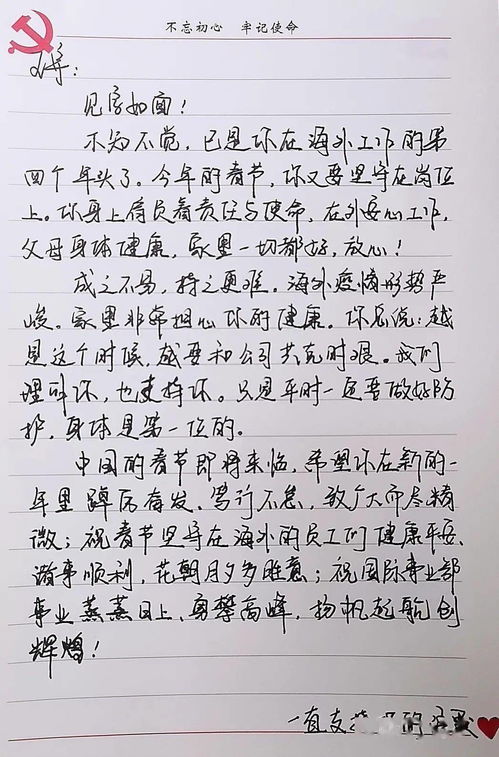 不忘初心 牢记使命
见字如面！
不知不觉，已是你在海外工作的第
四个年头了。今年的春节，你又要坚守在岗位
上。你身上肩负着责任与使命，在外安心工作，
父母身体健康，家里一切都好，放心！
成之不易，持之更难。海外疫情形势严
峻。家里非常担心你的健康。你总说：越
是这个时候，越要和公司共克时艰。我们
理解你，也支持你。只是平时一定要做好防
护，身体是第一位的。
中国的春节即将来临，希望你在新的一
年里踔厉奋发、笃行不怠，致广大而尽精
微；祝春节坚守在海外的员工们健康平安、
诸事顺利，花朝月夕多胜意；祝国际事业部
事业蒸蒸日上，勇攀高峰，扬帆起航创
辉煌！
一直支